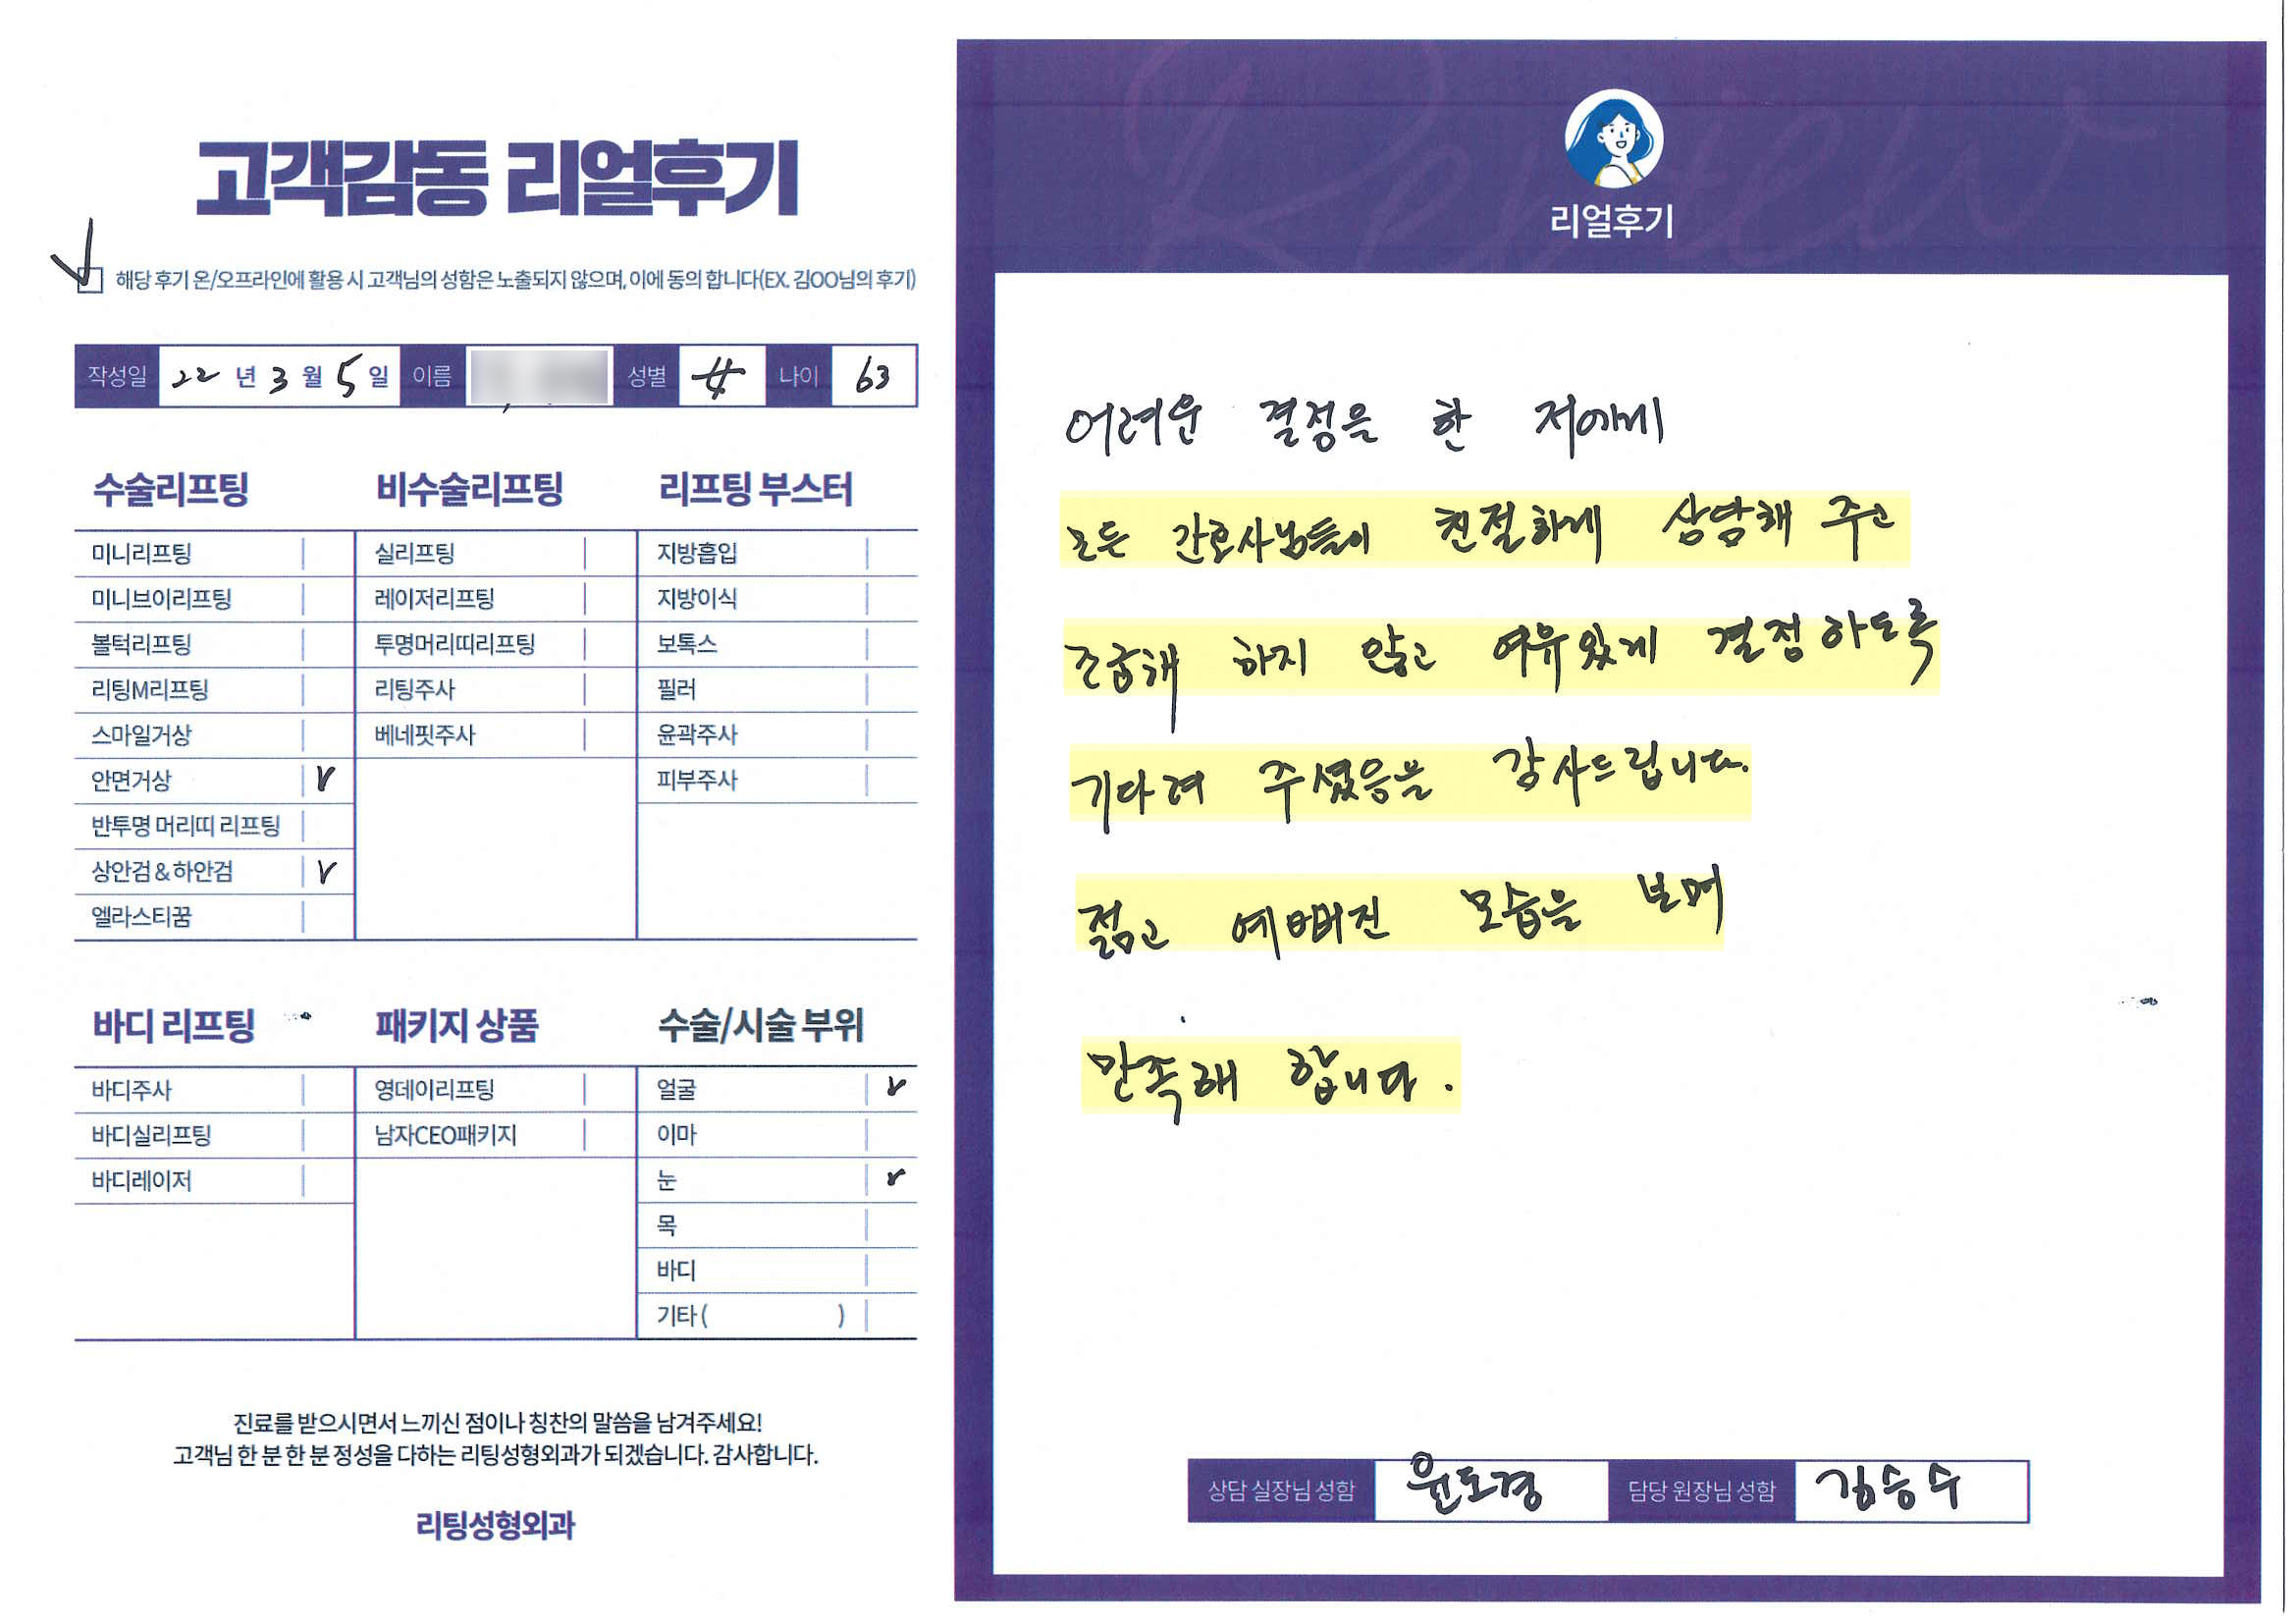 고객감동 리얼후기
해당 후기 온/오프라인에 활용 시 고객님의 성함은 노출되지 않으며, 이에 동의 합니다(EX. 김OO님의 후기)
작성일 22 년 3 월 5 일 이름 성별 女 나이 63
수술리프팅
미니리프팅
미니브이리프팅
볼턱리프팅
리팅M리프팅
스마일거상
안면거상 V
반투명 머리띠 리프팅
상안검 & 하안검 V
엘라스티꿈
비수술리프팅
실리프팅
레이저리프팅
투명머리띠리프팅
리팅주사
베네핏주사
리프팅 부스터
지방흡입
지방이식
보톡스
필러
윤곽주사
피부주사
바디 리프팅
바디주사
바디실리프팅
바디레이저
패키지 상품
영데이리프팅
남자CEO패키지
수술/시술 부위
얼굴 V
이마
눈 V
목
바디
기타 ( )
진료를 받으시면서 느끼신 점이나 칭찬의 말씀을 남겨주세요!
고객님 한 분 한 분 정성을 다하는 리팅성형외과가 되겠습니다. 감사합니다.
리팅성형외과
리얼후기
어려운 결정을 한 저에게
모든 간호사님들이 친절하게 상담해 주고
조급해 하지 않고 여유있게 결정하도록
기다려 주셨음을 감사드립니다.
젊고 예뻐진 모습을 보며
만족해 합니다.
상담 실장님 성함 윤도경 담당 원장님 성함 김승수